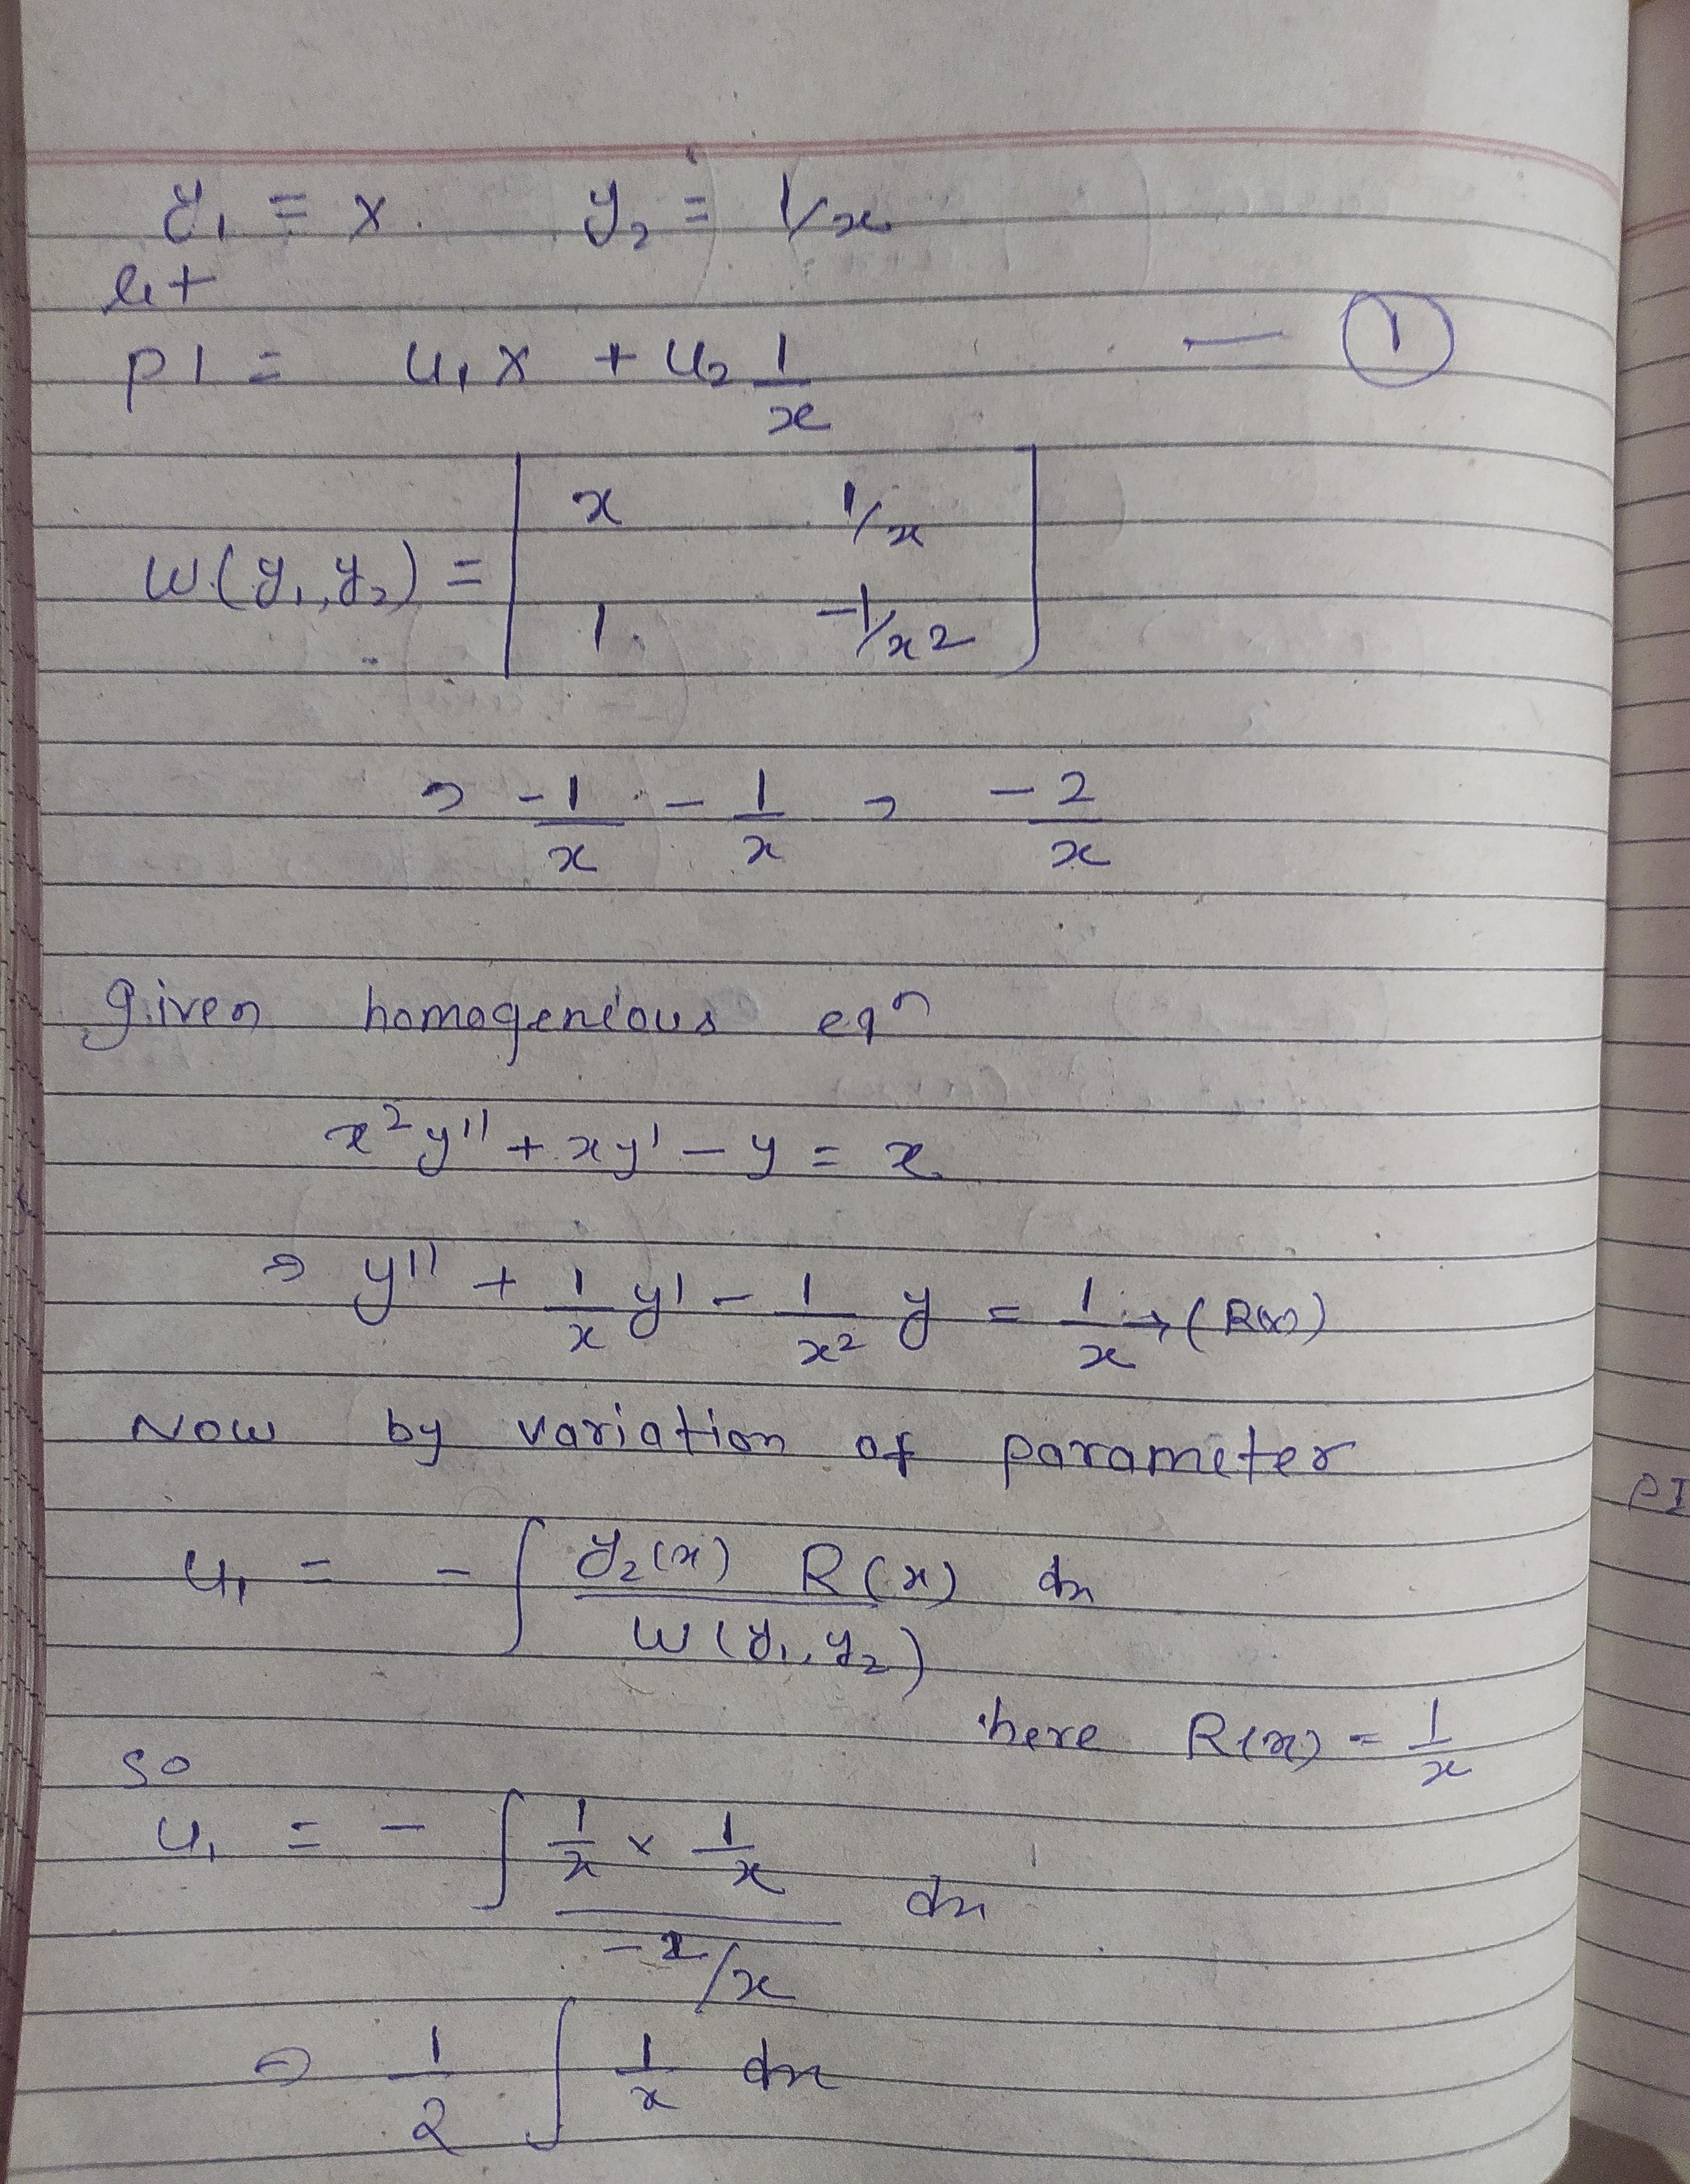 y₁ = x. y₂ = 1/x
let
PI = u₁x + u₂ 1/x — ①
W(y₁,y₂) = | x 1/x |
| 1. -1/x2 |
⇒ -1/x - 1/x ⇒ -2/x
given homogeneious eqⁿ
x²y'' + xy' - y = x
⇒ y'' + 1/x y' - 1/x² y = 1/x → (R(x))
Now by variation of parameter
u₁ = - ∫ y₂(x) R(x) / W(y₁,y₂) dx
here R(x) = 1/x
so
u₁ = - ∫ (1/x × 1/x) / (-2/x) dx
⇒ 1/2 ∫ 1/x dx
PI